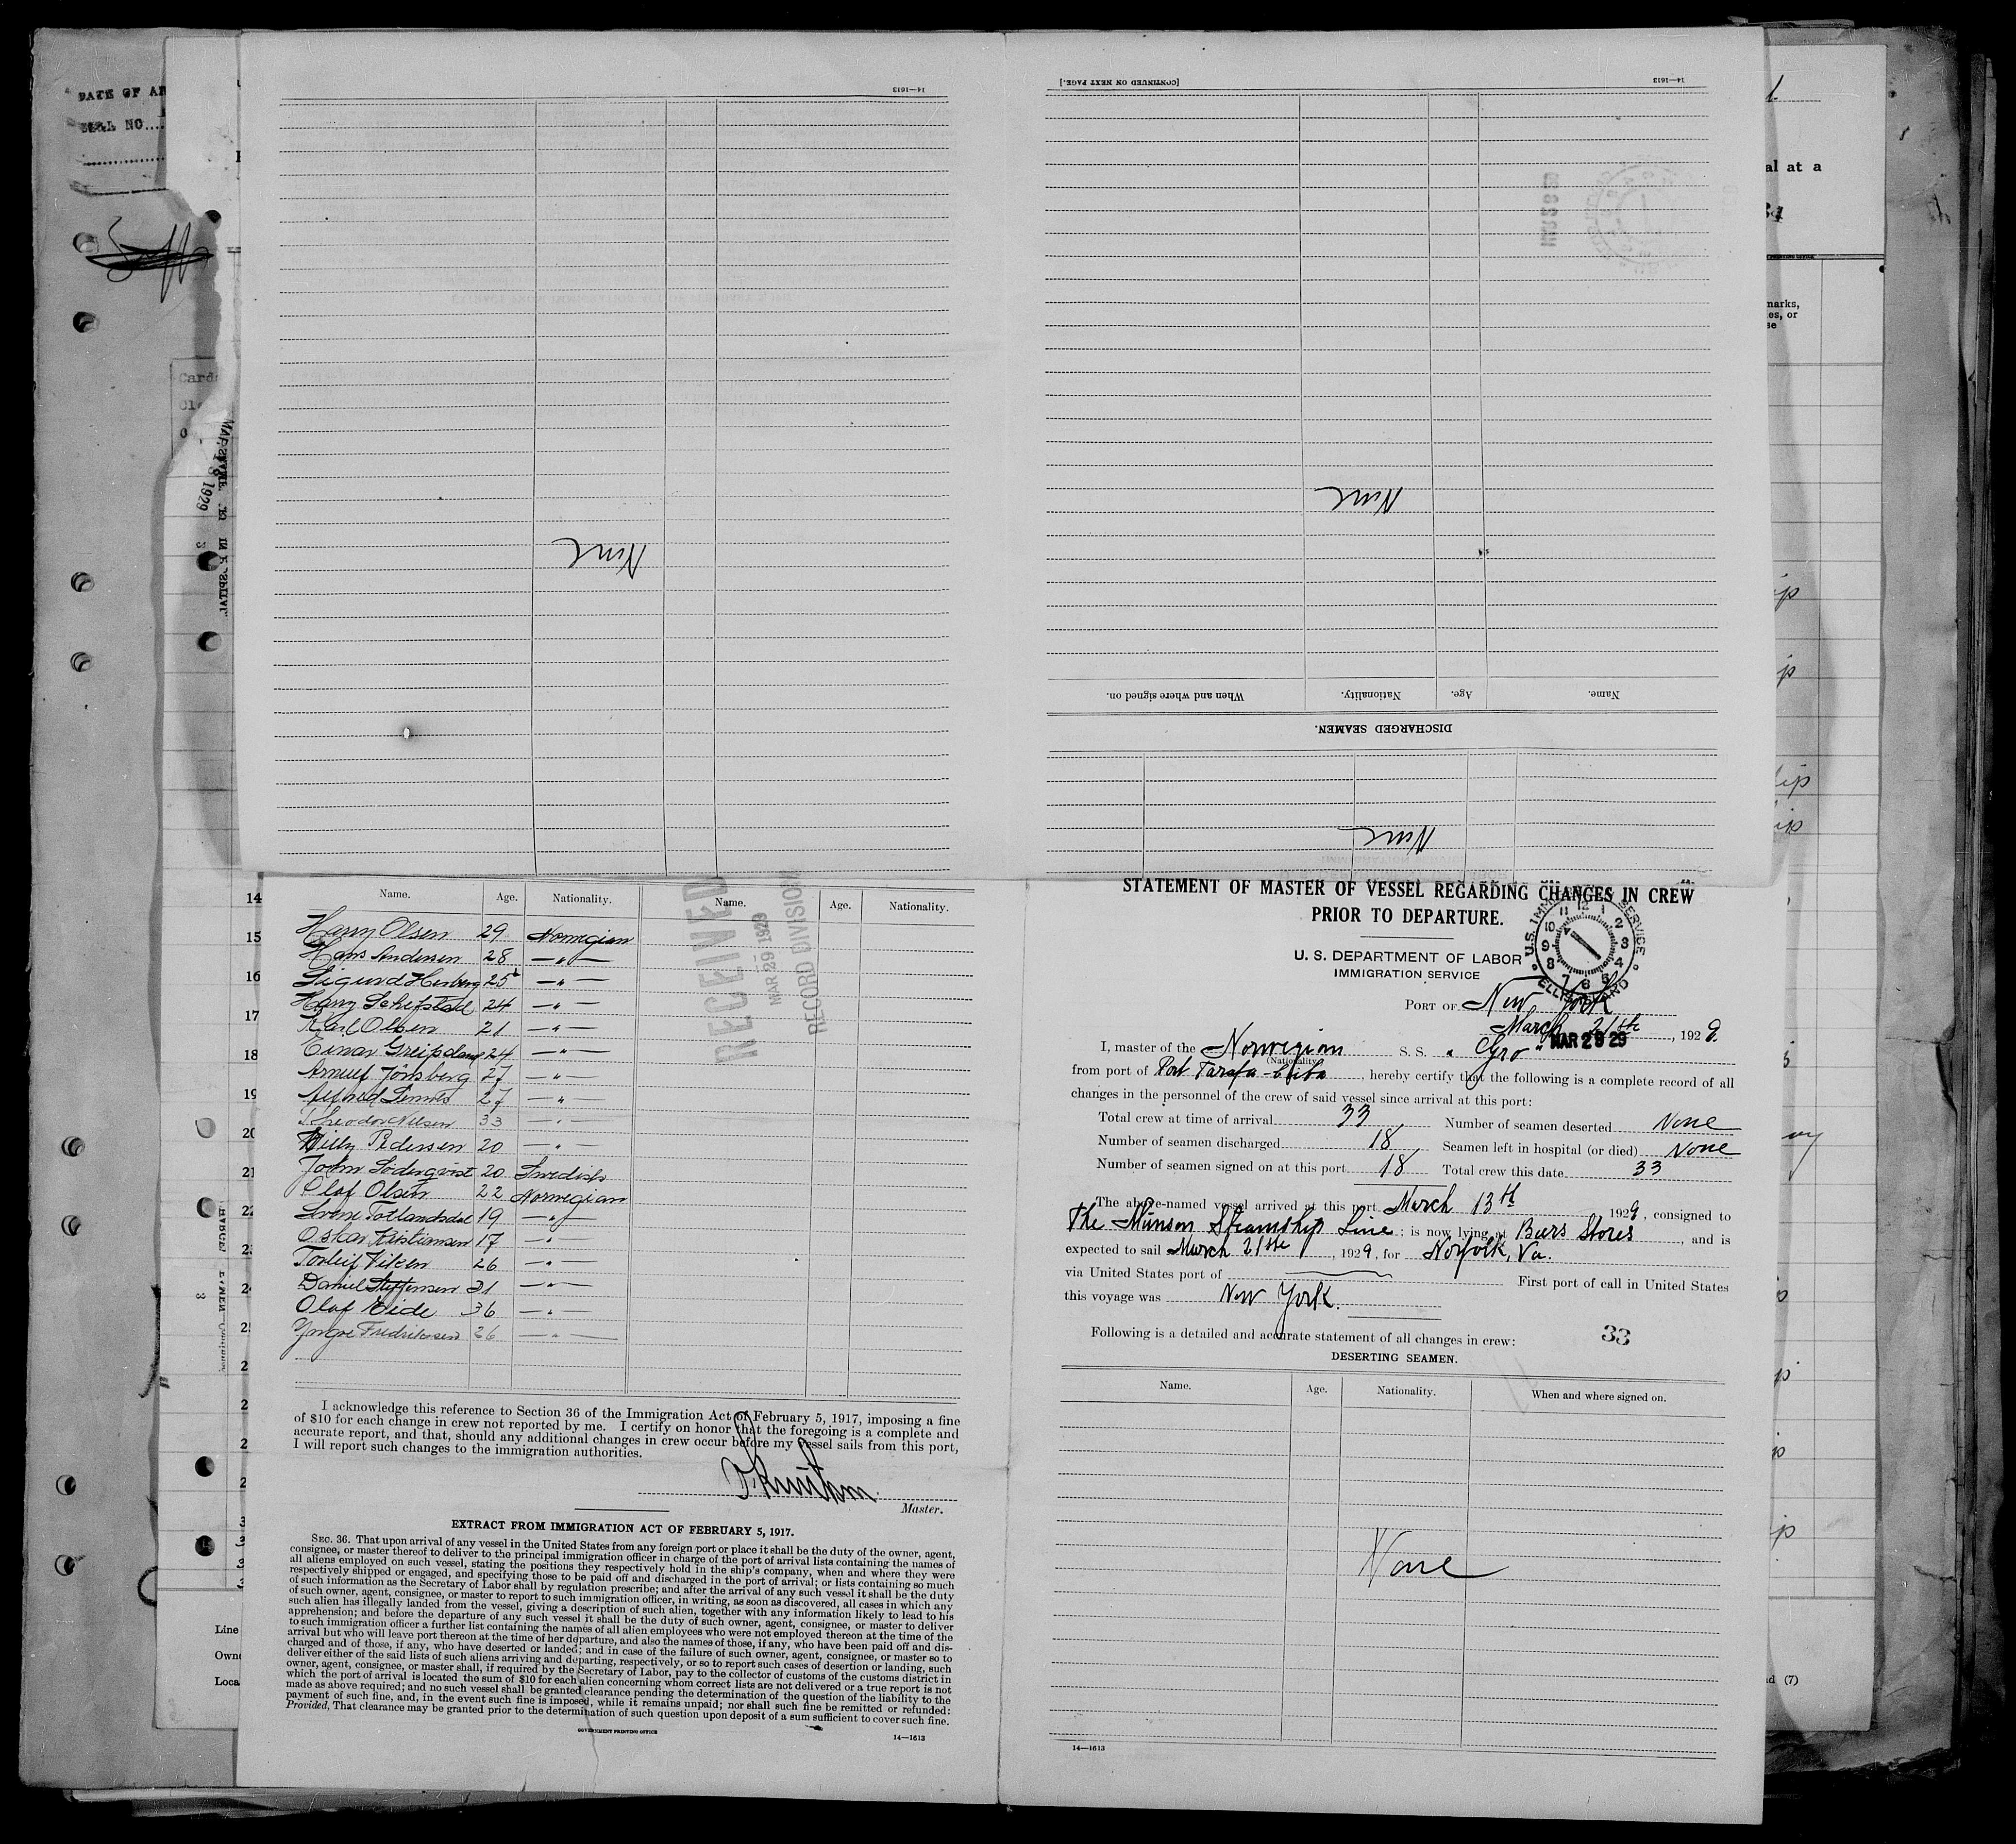 DATE OF AR
SEAL NO....
Card
MAR 1929
14—1613
None
[CONTINUED ON NEXT PAGE.]
14—1613
None
Name.
Age.
Nationality.
When and where signed on.
DISCHARGED SEAMEN.
None
al at a
marks,
es, or
se
ip
ip
ip
ip
14
15
16
17
18
19
20
21
22
Name. Age. Nationality. Name. Age. Nationality.
Harry Olsen 29 Norwegian
Hans Andersen 28 —"—
Sigurd 25 —"—
Harry 24 —"—
Karl Olsen 21 —"—
Einar 24 —"—
Arnulf Jönsberg 27 —"—
Alfred 27 —"—
Theodor Nilsen 33 —"—
Willy Pedersen 20 —"—
John Söderqvist 20 Swedish
Olaf Olsen 22 Norwegian
Totlandsdal 19 —"—
Oskar Kristiansen 17 —"—
Torleif Viken 26 —"—
Daniel Steffensen 31 —"—
Olaf Eide 36 —"—
Yngve Fredriksen 26 —"—
RECEIVED
MAR 29 1929
RECORD DIVISION
I acknowledge this reference to Section 36 of the Immigration Act of February 5, 1917, imposing a fine
of $10 for each change in crew not reported by me. I certify on honor that the foregoing is a complete and
accurate report, and that, should any additional changes in crew occur before my vessel sails from this port,
I will report such changes to the immigration authorities.
Master.
EXTRACT FROM IMMIGRATION ACT OF FEBRUARY 5, 1917.
SEC. 36. That upon arrival of any vessel in the United States from any foreign port or place it shall be the duty of the owner, agent,
consignee, or master thereof to deliver to the principal immigration officer in charge of the port of arrival lists containing the names of
all aliens employed on such vessel, stating the positions they respectively hold in the ship's company, when and where they were
respectively shipped or engaged, and specifying those to be paid off and discharged in the port of arrival; or lists containing so much
of such information as the Secretary of Labor shall by regulation prescribe; and after the arrival of any such vessel it shall be the duty
of such owner, agent, consignee, or master to report to such immigration officer, in writing, as soon as discovered, all cases in which any
such alien has illegally landed from the vessel, giving a description of such alien, together with any information likely to lead to his
apprehension; and before the departure of any such vessel it shall be the duty of such owner, agent, consignee, or master to deliver
to such immigration officer a further list containing the names of all alien employees who were not employed thereon at the time of the
arrival but who will leave port thereon at the time of her departure, and also the names of those, if any, who have been paid off and dis-
charged and of those, if any, who have deserted or landed; and in case of the failure of such owner, agent, consignee, or master so to
deliver either of the said lists of such aliens arriving and departing, respectively, or so to report such cases of desertion or landing, such
owner, agent, consignee, or master shall, if required by the Secretary of Labor, pay to the collector of customs of the customs district in
which the port of arrival is located the sum of $10 for each alien concerning whom correct lists are not delivered or a true report is not
made as above required; and no such vessel shall be granted clearance pending the determination of the question of the liability to the
payment of such fine, and, in the event such fine is imposed, while it remains unpaid; nor shall such fine be remitted or refunded:
Provided, That clearance may be granted prior to the determination of such question upon deposit of a sum sufficient to cover such fine.
GOVERNMENT PRINTING OFFICE
14—1613
Line
Owne
Loca
STATEMENT OF MASTER OF VESSEL REGARDING CHANGES IN CREW
PRIOR TO DEPARTURE.
U. S. DEPARTMENT OF LABOR
IMMIGRATION SERVICE
U.S. IMMIGRATION SERVICE
ELLIS ISLAND
PORT OF New York
March 21st, 1929.
MAR 29 29
I, master of the Norwegian S. S. "Gro"
(Nationality)
from port of Port Tarafa-Cuba, hereby certify that the following is a complete record of all
changes in the personnel of the crew of said vessel since arrival at this port:
Total crew at time of arrival 33 Number of seamen deserted None
Number of seamen discharged 18 Seamen left in hospital (or died) None
Number of seamen signed on at this port 18 Total crew this date 33
The above-named vessel arrived at this port March 13th 1929, consigned to
The Munson Steamship Line; is now lying at Stores, and is
expected to sail March 21st, 1929, for Norfolk, Va.
via United States port of First port of call in United States
this voyage was New York.
Following is a detailed and accurate statement of all changes in crew: 33
DESERTING SEAMEN.
Name. Age. Nationality. When and where signed on.
None
14—1613
nd (7)